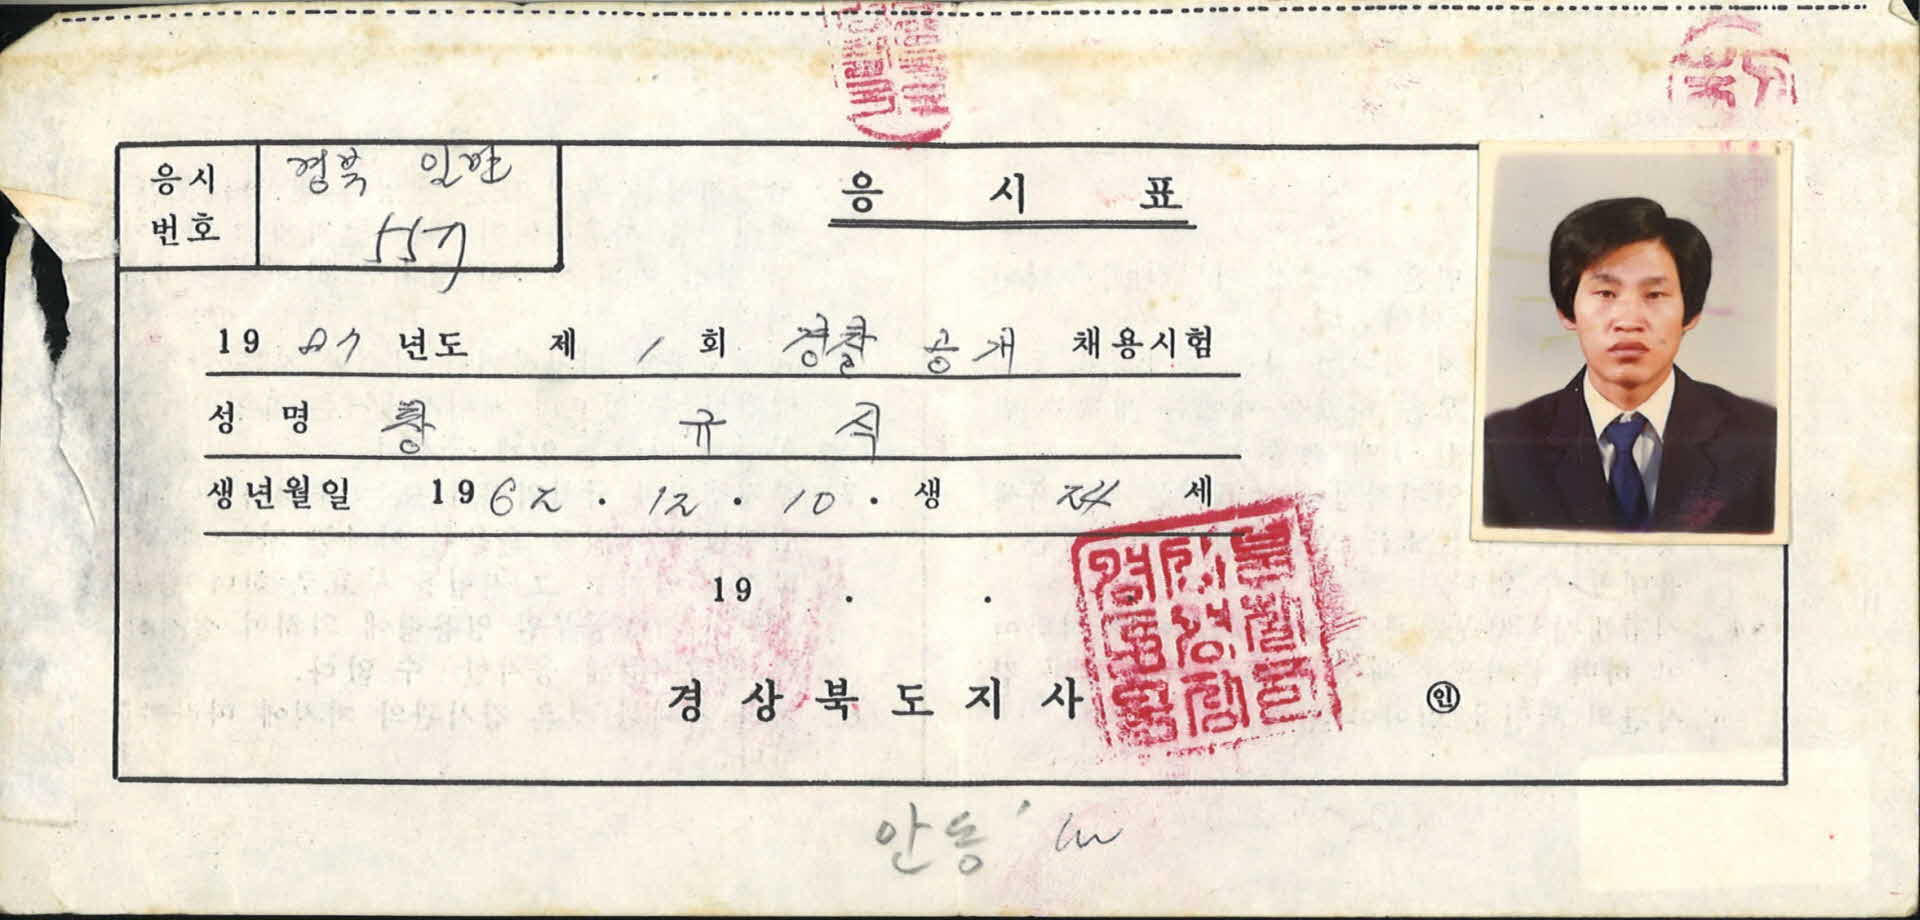 응시번호 경북 일반 557
응시표
1987년도 제 1회 경찰 공개 채용시험
성명 황규석
생년월일 1962. 12. 10. 생 24세
19 . .
경상북도지사 ㊞
안동